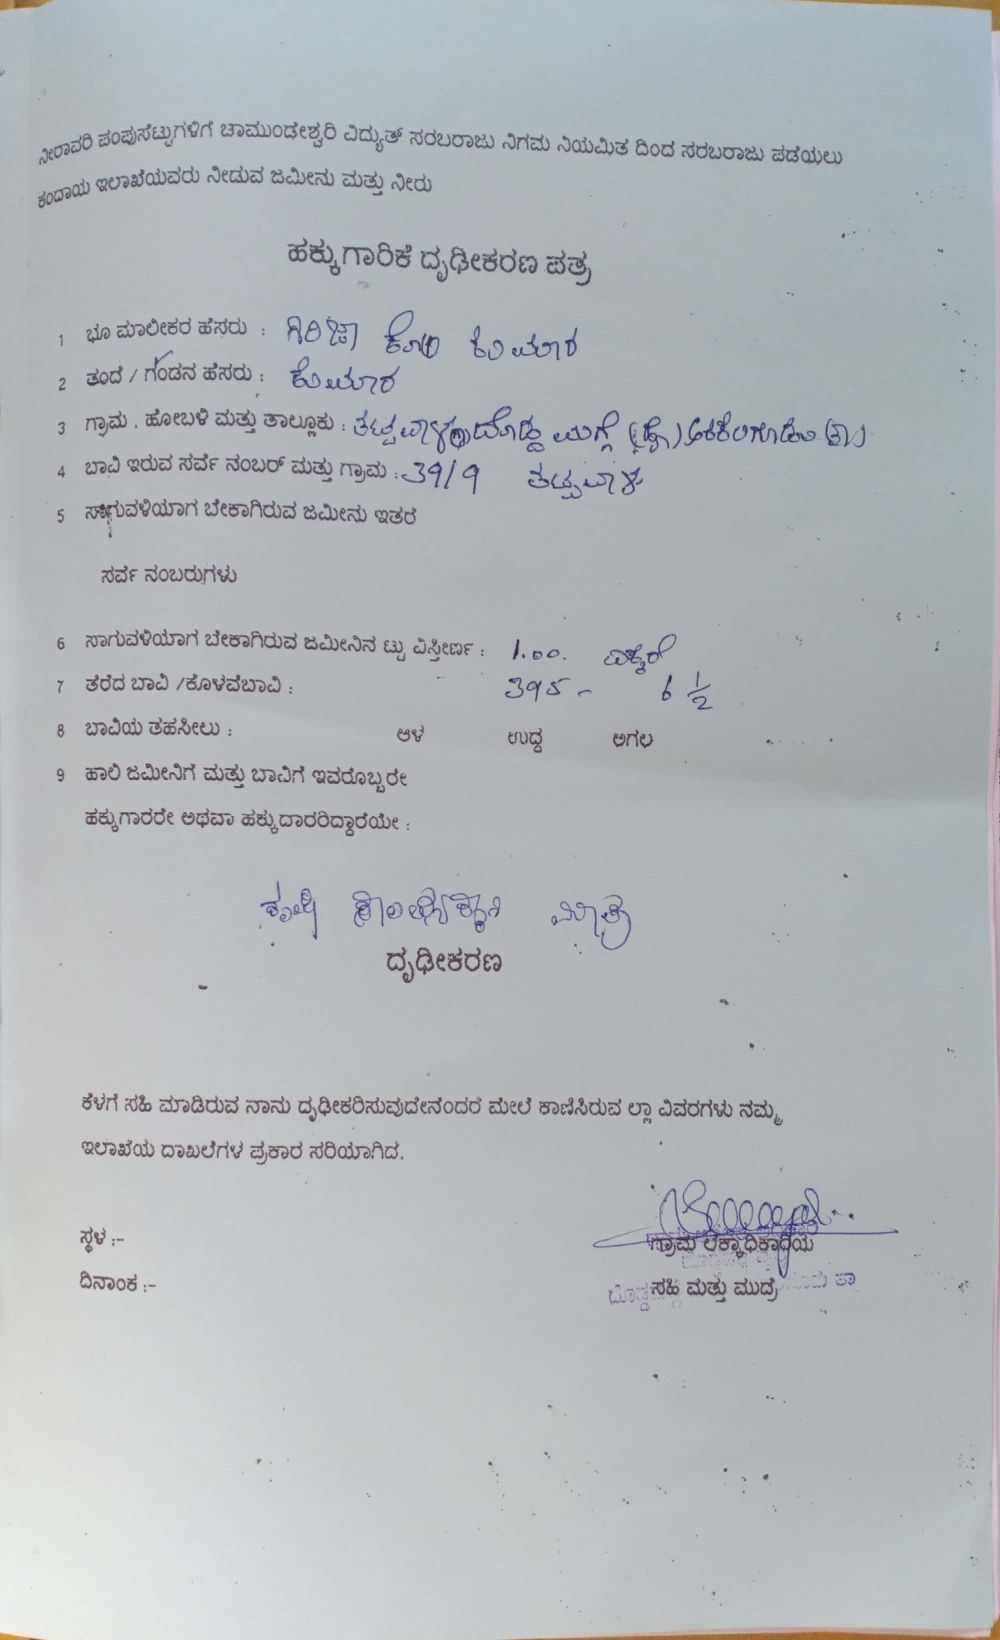 ನೀರಾವರಿ ಪಂಪುಸೆಟ್ಟುಗಳಿಗೆ ಚಾಮುಂಡೇಶ್ವರಿ ವಿದ್ಯುತ್ ಸರಬರಾಜು ನಿಗಮ ನಿಯಮಿತ ದಿಂದ ಸರಬರಾಜು ಪಡೆಯಲು
ಕಂದಾಯ ಇಲಾಖೆಯವರು ನೀಡುವ ಜಮೀನು ಮತ್ತು ನೀರು
ಹಕ್ಕುಗಾರಿಕೆ ದೃಢೀಕರಣ ಪತ್ರ
1 ಭೂ ಮಾಲೀಕರ ಹೆಸರು : ಗಿರಿಜಾ ಕೋಂ ಕುಮಾರ
2 ತಂದೆ / ಗಂಡನ ಹೆಸರು : ಕುಮಾರ
3 ಗ್ರಾಮ , ಹೋಬಳಿ ಮತ್ತು ತಾಲ್ಲೂಕು : ದೊಡ್ಡ ಮಗ್ಗೆ (ಹೋ) ಅರಕಲಗೂಡು (ತಾ)
4 ಬಾವಿ ಇರುವ ಸರ್ವೆ ನಂಬರ್ ಮತ್ತು ಗ್ರಾಮ : 39/9
5 ಸಾಗುವಳಿಯಾಗ ಬೇಕಾಗಿರುವ ಜಮೀನು ಇತರ
ಸರ್ವೆ ನಂಬರುಗಳು
6 ಸಾಗುವಳಿಯಾಗ ಬೇಕಾಗಿರುವ ಜಮೀನಿನ ಟ್ಟು ವಿಸ್ತೀರ್ಣ : 1.00. ಎಕ್ಕರೆ
7 ತೆರೆದ ಬಾವಿ /ಕೊಳವೆಬಾವಿ : 395 - 6 1/2
8 ಬಾವಿಯ ತಹಸೀಲು : ಆಳ ಉದ್ದ ಅಗಲ
9 ಹಾಲಿ ಜಮೀನಿಗೆ ಮತ್ತು ಬಾವಿಗೆ ಇವರೊಬ್ಬರೇ
ಹಕ್ಕುಗಾರರೇ ಅಥವಾ ಹಕ್ಕುದಾರರಿದ್ದಾರೆಯೇ :
ಕೃಷಿ ಮಾತ್ರ
ದೃಢೀಕರಣ
ಕೆಳಗೆ ಸಹಿ ಮಾಡಿರುವ ನಾನು ದೃಢೀಕರಿಸುವುದೇನೆಂದರೆ ಮೇಲೆ ಕಾಣಿಸಿರುವ ಲ್ಲಾ ವಿವರಗಳು ನಮ್ಮ
ಇಲಾಖೆಯ ದಾಖಲೆಗಳ ಪ್ರಕಾರ ಸರಿಯಾಗಿದೆ.
ಸ್ಥಳ :-
ಗ್ರಾಮ ಲೆಕ್ಕಾಧಿಕಾರಿಯ
ದಿನಾಂಕ :-
ಸಹಿ ಮತ್ತು ಮುದ್ರೆ